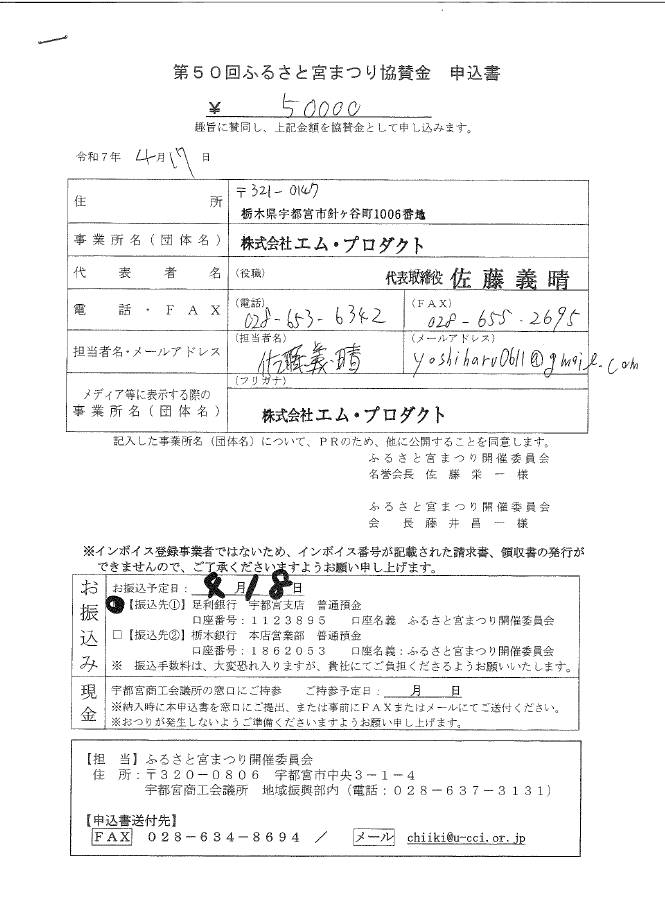 第50回ふるさと宮まつり協賛金 申込書
¥ 50000
趣旨に賛同し、上記金額を協賛金として申し込みます。
令和7年 4月17日
住所 〒321-0147
栃木県宇都宮市針ヶ谷町1006番地
事業所名(団体名) 株式会社エム・プロダクト
代表者名 (役職) 代表取締役 佐藤義晴
電話・FAX (電話) 028-653-6342 (FAX) 028-655-2695
担当者名・メールアドレス (担当者名) 佐藤義晴 (メールアドレス) yoshiharu0611@gmail.com
メディア等に表示する際の
事業所名(団体名) (フリガナ)
株式会社エム・プロダクト
記入した事業所名(団体名)について、PRのため、他に公開することを同意します。
ふるさと宮まつり開催委員会
名誉会長 佐藤栄一様
ふるさと宮まつり開催委員会
会長 藤井昌一様
※インボイス登録事業者ではないため、インボイス番号が記載された請求書、領収書の発行が
できませんので、ご了承くださいますようお願い申し上げます。
お振込み
お振込予定日: 4月18日
【振込先①】足利銀行 宇都宮支店 普通預金
口座番号:1123895 口座名義 ふるさと宮まつり開催委員会
□【振込先②】栃木銀行 本店営業部 普通預金
口座番号:1862053 口座名義:ふるさと宮まつり開催委員会
※ 振込手数料は、大変恐れ入りますが、貴社にてご負担くださるようお願いいたします。
現金
宇都宮商工会議所の窓口にご持参 ご持参予定日: 月 日
※納入時に本申込書を窓口にご提出、または事前にFAXまたはメールにてご送付ください。
※おつりが発生しないようご準備くださいますようお願い申し上げます。
【担 当】ふるさと宮まつり開催委員会
住 所:〒320-0806 宇都宮市中央3-1-4
宇都宮商工会議所 地域振興部内(電話:028-637-3131)
【申込書送付先】
FAX 028-634-8694 / メール chiiki@u-cci.or.jp